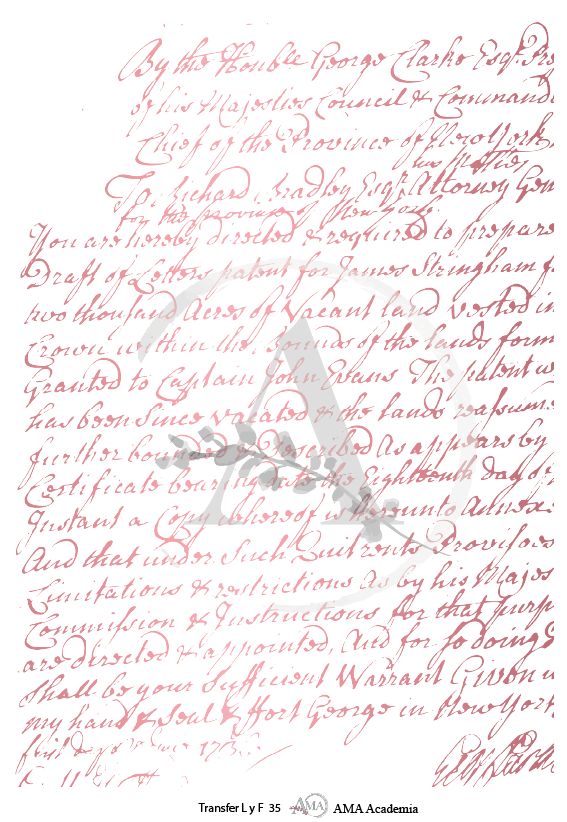 By the Honble George Clarke Esqr. Pre
of his Majesties Council & Command
Chief of the Province of New York
his Matties
To Richard Bradley Esqr. Attorney Gen
for the province of New York.
You are hereby directed & required to prepare
Draft of Letters patent for James Stringham f
two thousand Acres of Vacant land vested in
Crown within the Bounds of the lands form
Granted to Captain John Evans The patent w
has been Since Vacated & the lands reassume
further bounded & Described As appears by
Certificate bearing date the Eighteenth day of
Instant a Copy whereof is Hereunto Annex
And that under Such Quitrents Provisoes
Limitations & restrictions As by his Majes
Commission & Instructions for that purp
are directed & appointed, And for so doing
Shall be your Sufficient Warrant Given u
my hand & Seal & Fort George in New York
first 173
Geo Clarke
A
Transfer L y F 35 AMA AMA Academia